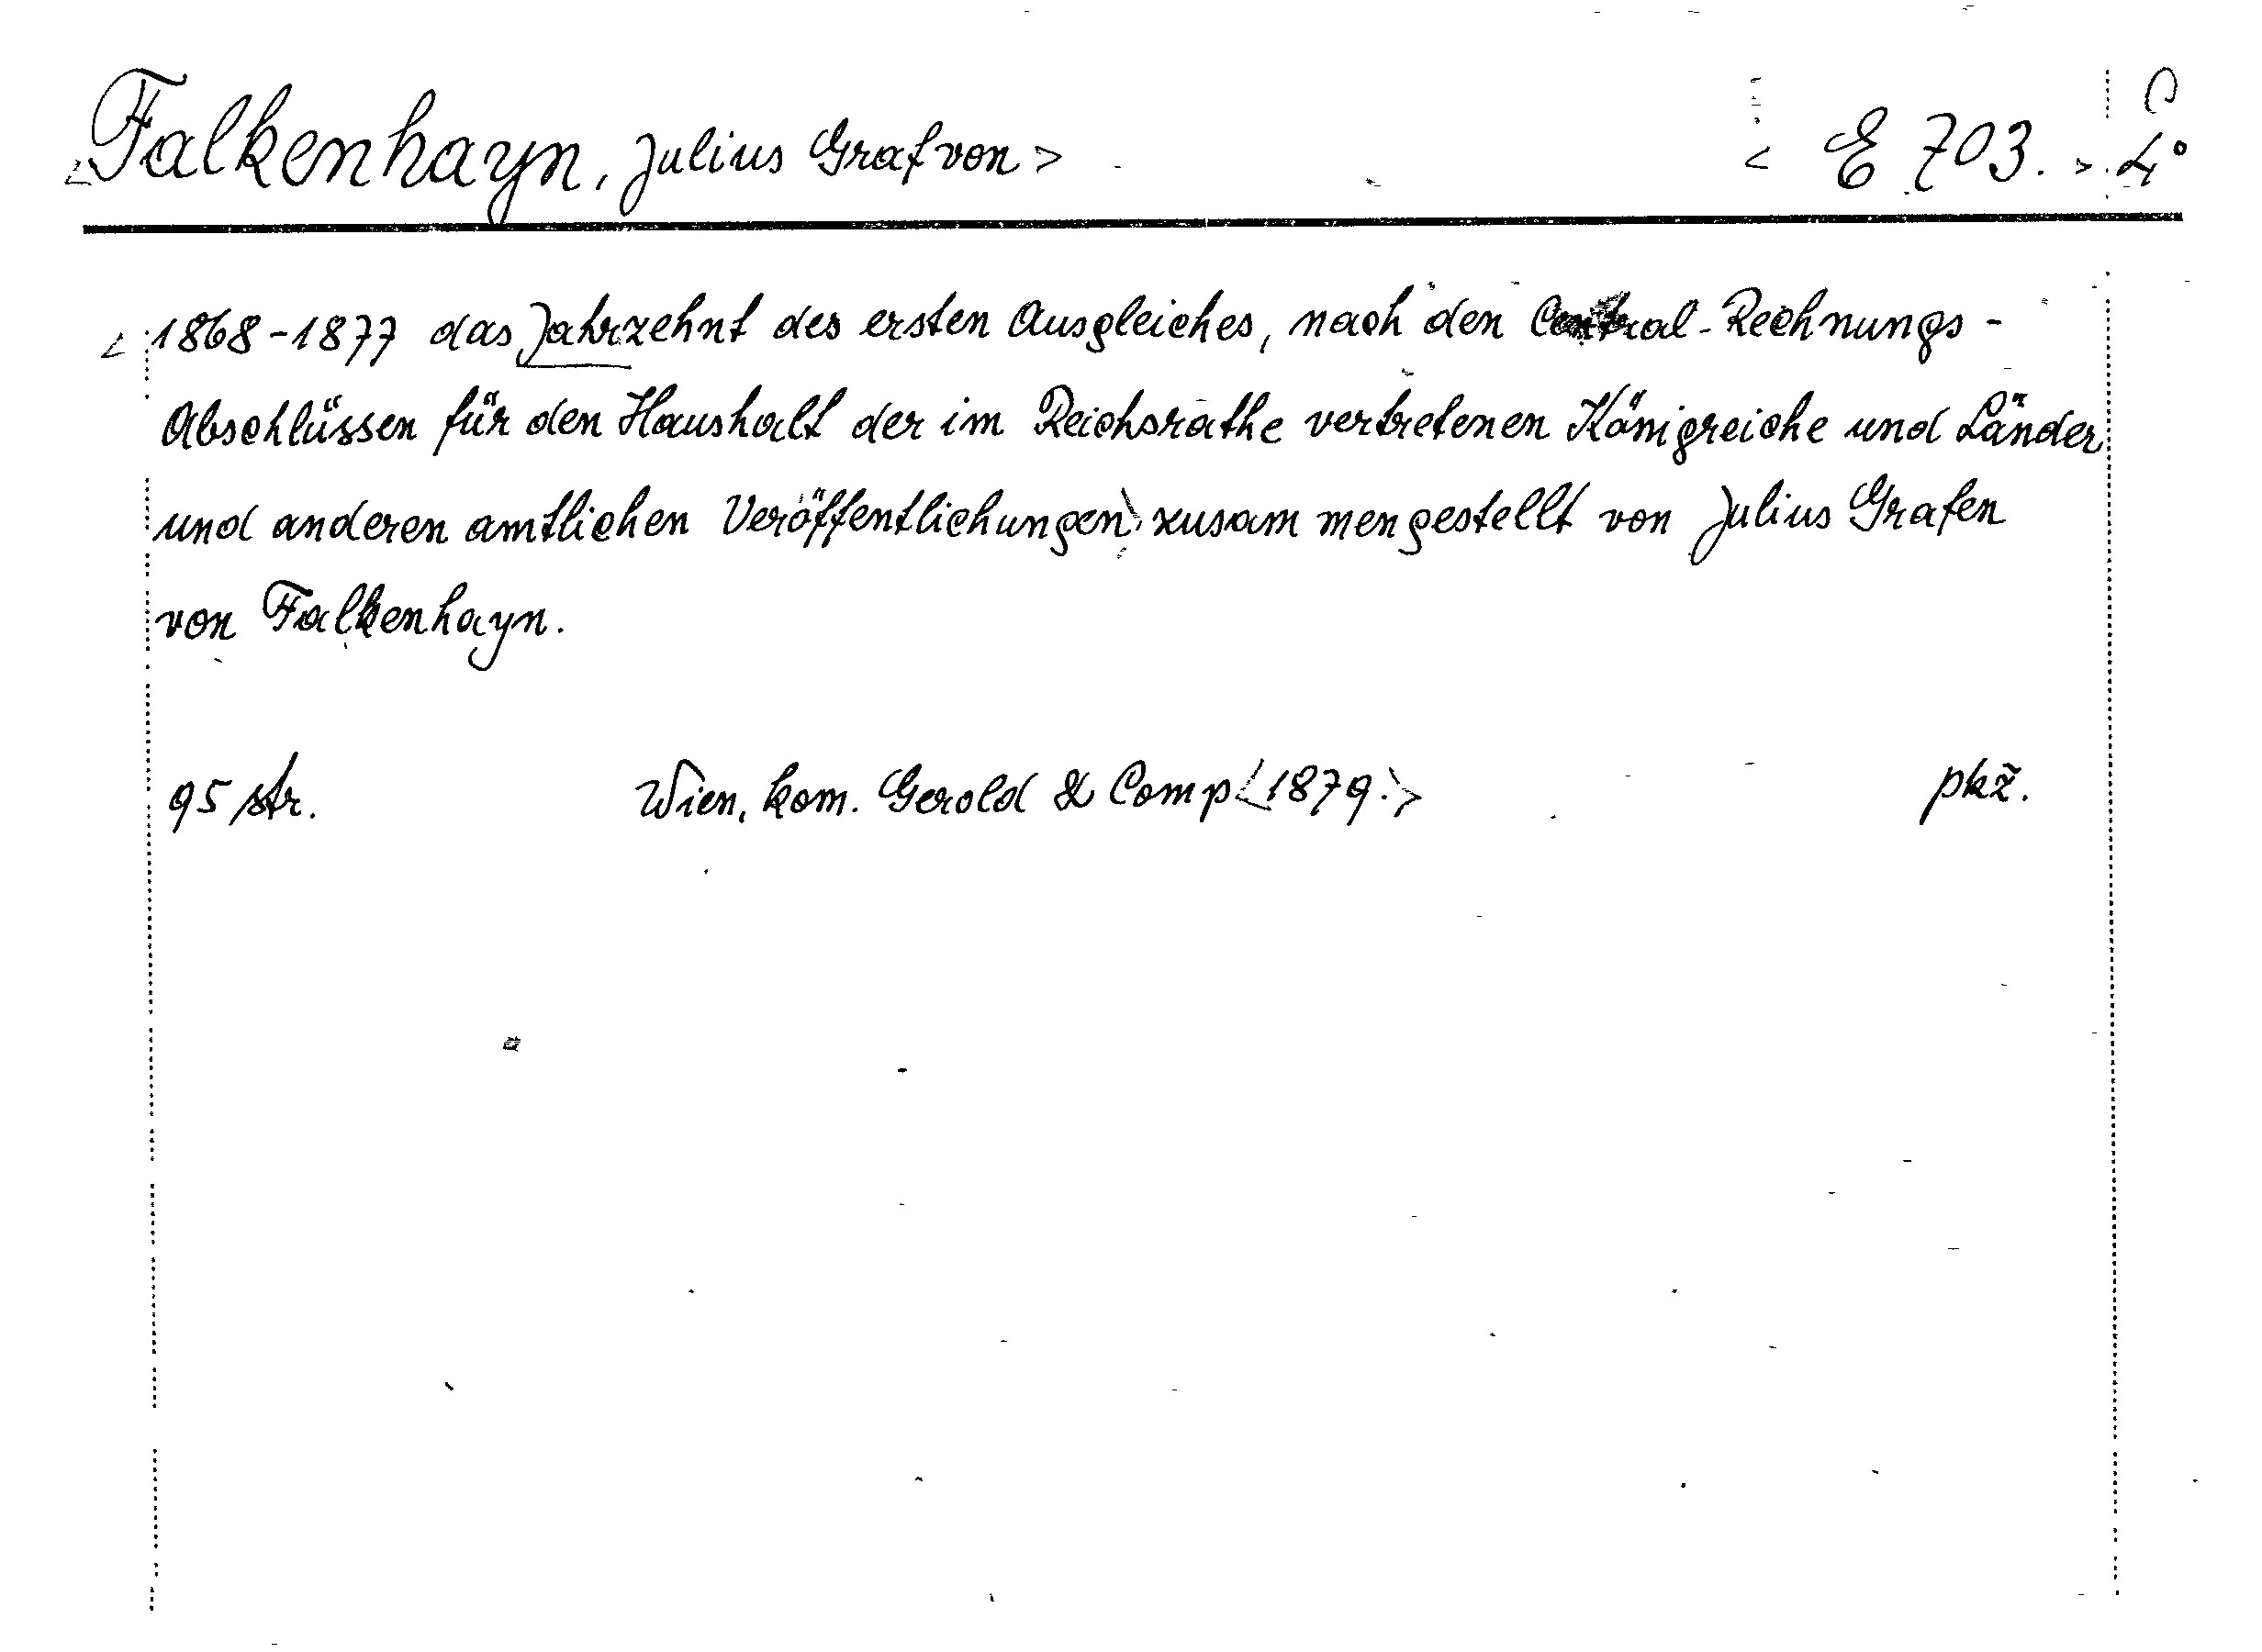 <Falkenhayn, Julius Graf von> < E 703. > 4°
<1868-1877 das Jahrzehnt des ersten Ausgleiches, nach den Central-Rechnungs-
Abschlüssen für den Haushalt der im Reichsrathe vertretenen Königreiche und Länder
und anderen amtlichen Veröffentlichungen> zusammengestellt von Julius Grafen
von Falkenhayn.
95 str. Wien, kom. Gerold & Comp <1879.> pkž.